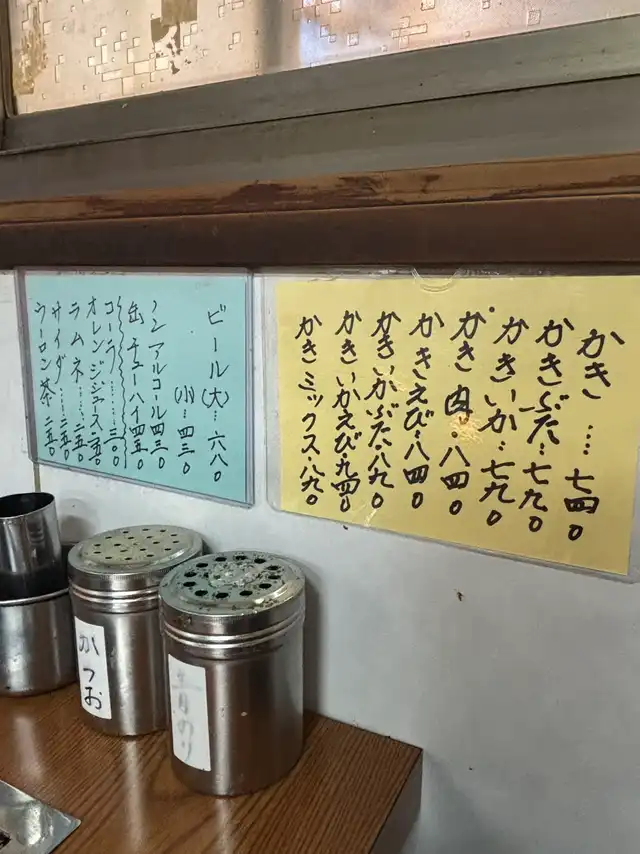 かき…七四〇
かきぶた…七九〇
かきいか…七九〇
かき肉…八四〇
かきえび…八四〇
かきいかぶた八九〇
かきいかえび九四〇
かきミックス・八九〇
ビール(大)…六八〇
(小)…四三〇
ノンアルコール四三〇
缶チューハイ四五〇
コーラ……三〇〇
オレンジジュース二五〇
ラムネ……二五〇
サイダー……二五〇
ウーロン茶 二五〇
かつお
青のり